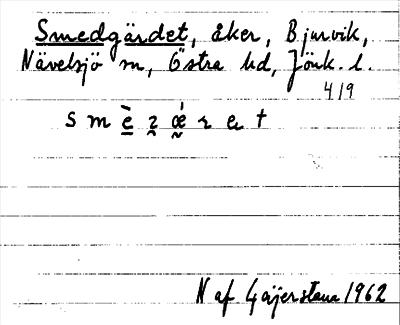 Smedgärdet, åker, Bjurvik,
Nävelsjö sn, Östra hd, Jönk. l.
419
s m è̱ ʒ̰ œ̰́ r e t
N af Geijerstam 1962